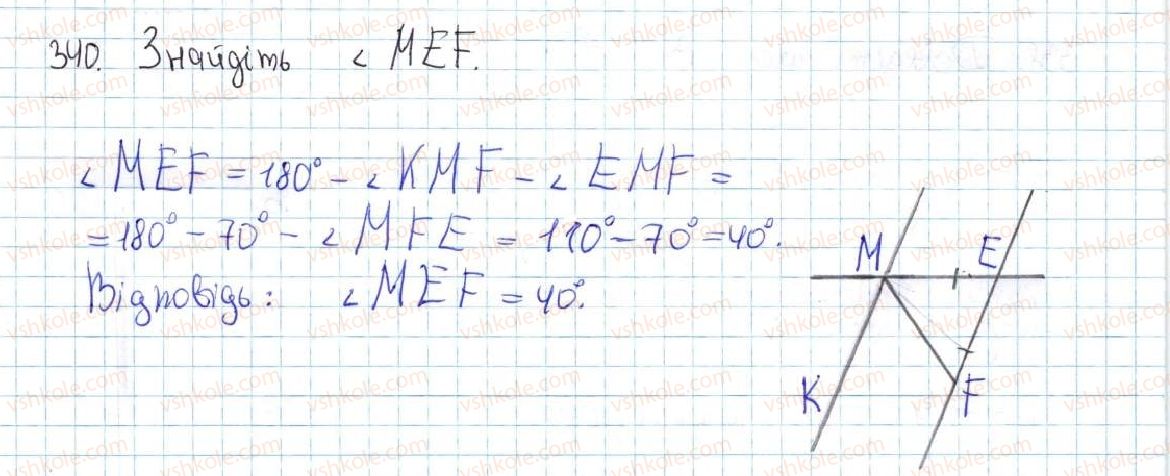 340. Знайдіть ∠ MEF.
∠ MEF = 180° - ∠ KMF - ∠ EMF =
= 180° - 70° - ∠ MFE = 110° - 70° = 40°.
Відповідь: ∠ MEF = 40°.
M E
K F
vshkole.com